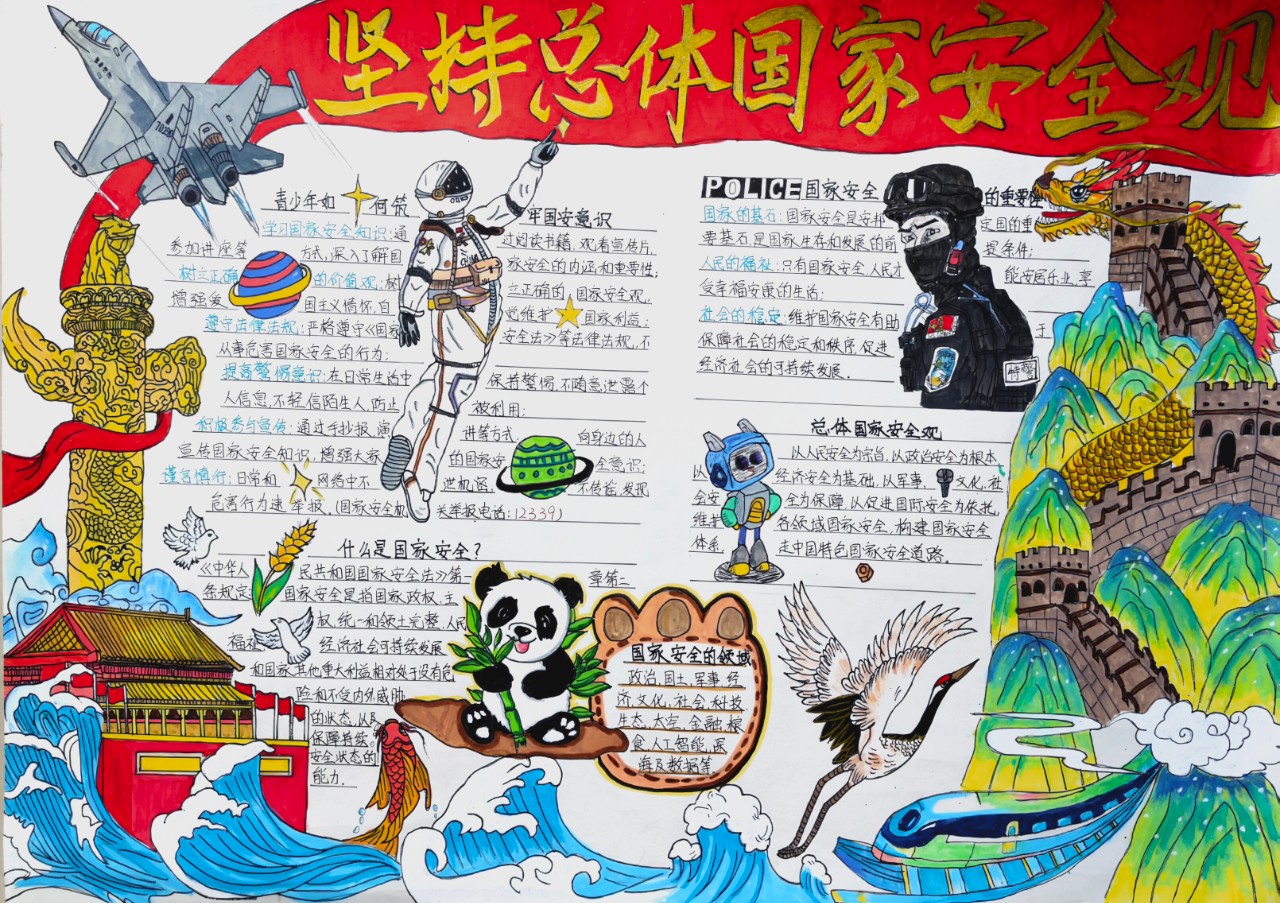 坚持总体国家安全观
青少年如何筑牢国安意识
学习国家安全知识:通过阅读书籍、观看宣传片、
参加讲座等方式,深入了解国家安全的内涵和重要性;
树立正确的价值观:树立正确的国家安全观,
增强爱国主义情怀,自觉维护国家利益;
遵守法律法规:严格遵守《国家安全法》等法律法规,不
从事危害国家安全的行为;
提高警惕意识:在日常生活中保持警惕,不随意泄露个
人信息,不轻信陌生人,防止被利用;
积极参与宣传:通过手抄报、演讲等方式向身边的人
宣传国家安全知识,增强大家的国家安全意识;
谨言慎行:日常和网络中不泄机密、不传谣,发现
危害行为速举报。(国家安全机关举报电话:12339)
什么是国家安全?
《中华人民共和国国家安全法》第一章第二
条规定:国家安全是指国家政权、主
权、统一和领土完整、人民
福祉、经济社会可持续发展
和国家其他重大利益相对处于没有危
险和不受内外威胁
的状态,以及
保障持续
安全状态的
能力.
POLICE国家安全的重要性
国家的基石:国家安全是安邦定国的重
要基石,是国家生存和发展的前提条件;
人民的福祉:只有国家安全,人民才能安居乐业,享
受幸福安康的生活;
社会的稳定:维护国家安全有助于
保障社会的稳定和秩序,促进
经济社会的可持续发展.
特警
总体国家安全观
以人民安全为宗旨,以政治安全为根本
以经济安全为基础,以军事、文化、社
会安全为保障,以促进国际安全为依托,
维护各领域国家安全,构建国家安全
体系,走中国特色国家安全道路.
国家安全的领域
政治,国土,军事,经
济,文化,社会,科技
生态,太空,金融,粮
食,人工智能,深
海及数据等